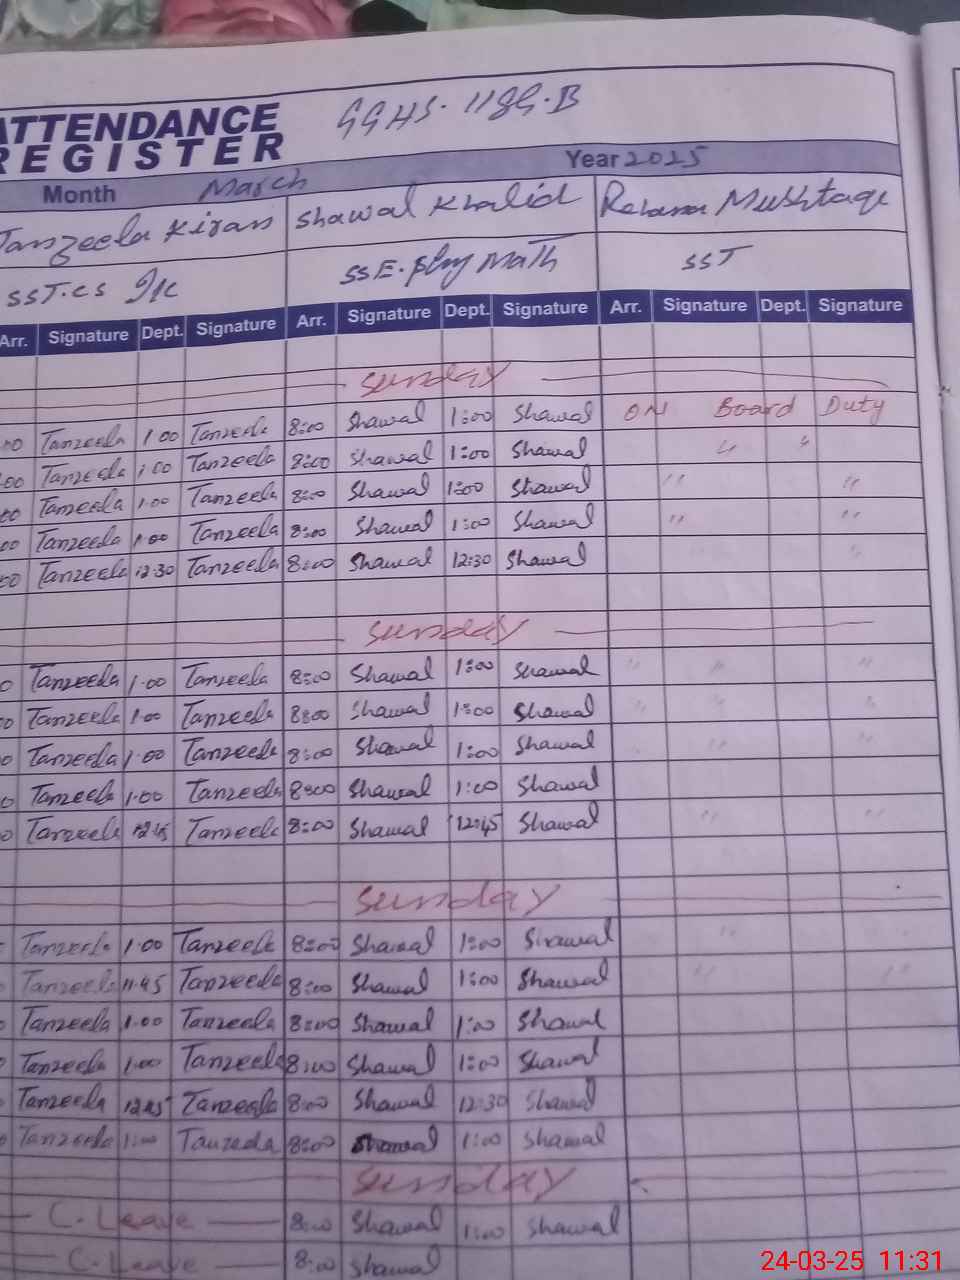 ATTENDANCE GGHS. 118G.B
REGISTER
Month March Year 2025
Tanzeela Kiran Shawal Khalid Mushtaqe
SST.CS SSE. Phy Math SST
Arr. Signature Dept. Signature Arr. Signature Dept. Signature Arr. Signature Dept. Signature
Sunday
00 Tanzeela 1.00 Tanzeela 8:00 Shawal 1:00 Shawal ON Board Duty
00 Tanzeela 1.00 Tanzeela 8:00 Shawal 1:00 Shawal " "
00 Tanzeela 1.00 Tanzeela 8:00 Shawal 1:00 Shawal " "
00 Tanzeela 1.00 Tanzeela 8:00 Shawal 1:00 Shawal " "
00 Tanzeela 12.30 Tanzeela 8:00 Shawal 12:30 Shawal "
Sunday
0 Tanzeela 1.00 Tanzeela 8:00 Shawal 1:00 Shawal " " "
0 Tanzeela 1.00 Tanzeela 8:00 Shawal 1:00 Shawal " " "
0 Tanzeela 1.00 Tanzeela 8:00 Shawal 1:00 Shawal " "
0 Tanzeela 1.00 Tanzeela 8:00 Shawal 1:00 Shawal
0 Tanzeela 12.45 Tanzeela 8:00 Shawal 12:45 Shawal " "
Sunday
Tanzeela 1.00 Tanzeela 8:00 Shawal 1:00 Shawal "
Tanzeela 11.45 Tanzeela 8:00 Shawal 1:00 Shawal " "
Tanzeela 1.00 Tanzeela 8:00 Shawal 1:00 Shawal
Tanzeela 1.00 Tanzeela 8:00 Shawal 1:00 Shawal
Tanzeela 12.45 Tanzeela 8:00 Shawal 12:30 Shawal
Tanzeela 1:00 Tanzeela 8:00 Shawal 1:00 Shawal
Sunday
C. Leave 8:00 Shawal 1:00 Shawal
C. Leave 8:00 Shawal
24-03-25 11:31